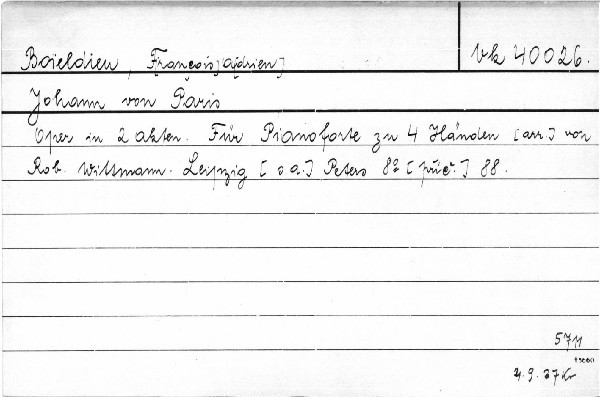 Boieldieu, F[rançois] A[drien]
vk 40026.
Johann von Paris
Oper in 2 akten. Für Pianoforte zu 4 Händen [arr.] von
Rob. Wittmann. Leipzig [o a.] Peters 8º [příč.] 88.
5711